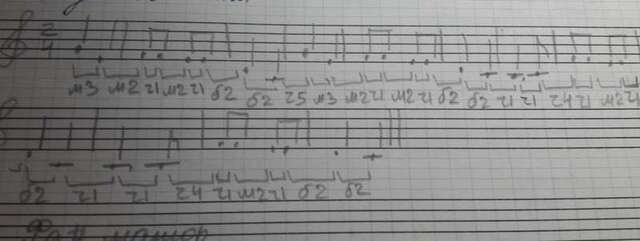 2
4
м3 м2 ч1 м2 ч1 б2 б2 ч5 м3 м2 ч1 м2 ч1 б2 б2 ч1 ч1 ч4 ч1 м2 ч1
б2 ч1 ч1 ч4 ч1 м2 ч1 б2 б2
мажор